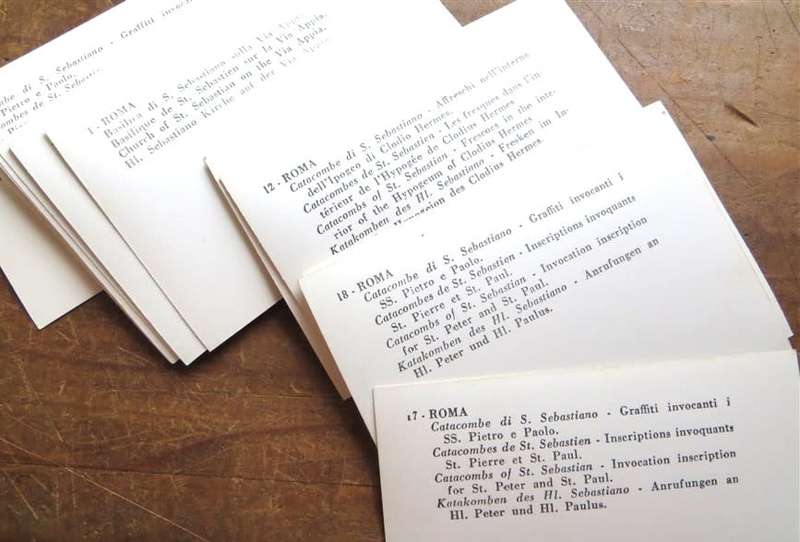 be di S. Sebastiano - Graffiti invoc
Pietro e Paolo.
bes de St. Sebastie
1 - ROMA
Basilica di S. Sebastiano sulla Via Appia.
Basilique de St. Sebastien sur la Via Appia.
Church of St. Sebastian on the Via Appia.
Hl. Sebastiano Kirche auf der Via Appia.
12 - ROMA
Catacombe di S. Sebastiano - Affreschi nell'interno
dell'Ipogeo di Clodio Hermes.
Catacombes de St. Sebastien - Les fresques dans l'in
térieur de l'Hypogée de Clodius Hermes
Catacombs of St. Sebastian - Frescoes in the inte-
rior of the Hypogeum of Clodius Hermes
Katakomben des Hl. Sebastiano - Fresken im In-
des Clodius Hermes.
18 - ROMA
Catacombe di S. Sebastiano - Graffiti invocanti i
SS. Pietro e Paolo.
Catacombes de St. Sebastien - Inscriptions invoquants
St. Pierre et St. Paul.
Catacombs of St. Sebastian - Invocation inscription
for St. Peter and St. Paul.
Katakomben des Hl. Sebastiano - Anrufungen an
Hl. Peter und Hl. Paulus.
17 - ROMA
Catacombe di S. Sebastiano - Graffiti invocanti i
SS. Pietro e Paolo.
Catacombes de St. Sebastien - Inscriptions invoquants
St. Pierre et St. Paul.
Catacombs of St. Sebastian - Invocation inscription
for St. Peter and St. Paul.
Katakomben des Hl. Sebastiano - Anrufungen an
Hl. Peter und Hl. Paulus.